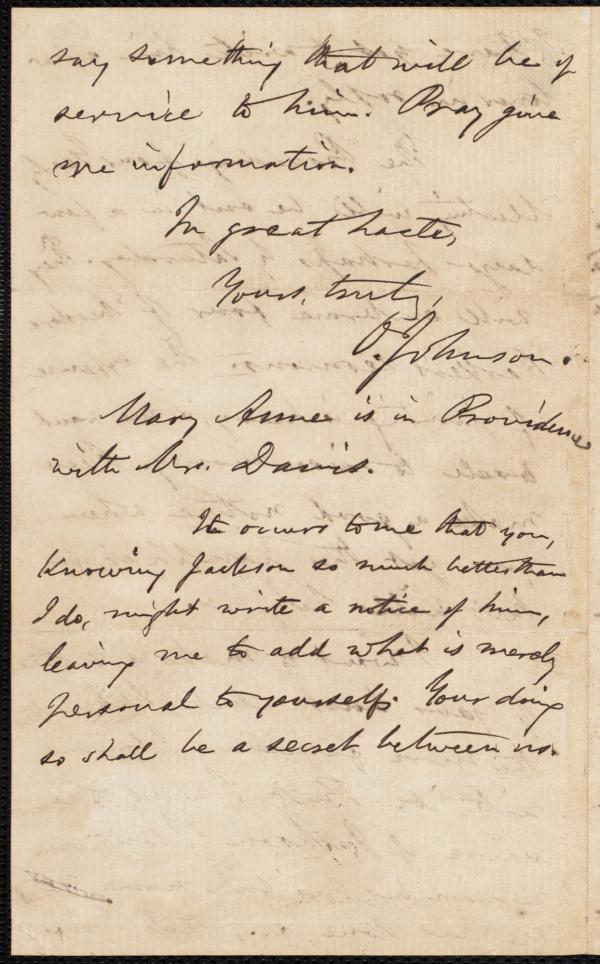 say something that will be of
service to him. Pray give
me information.
In great haste,
Yours, truly,
O. Johnson.
Mary Anne is in Providence
with Mrs. Davis.
It occurs to me that you,
Knowing Jackson so much better than
I do, might write a notice of him,
leaving me to add what is merely
personal to yourself. Your doing
so shall be a secret between us.